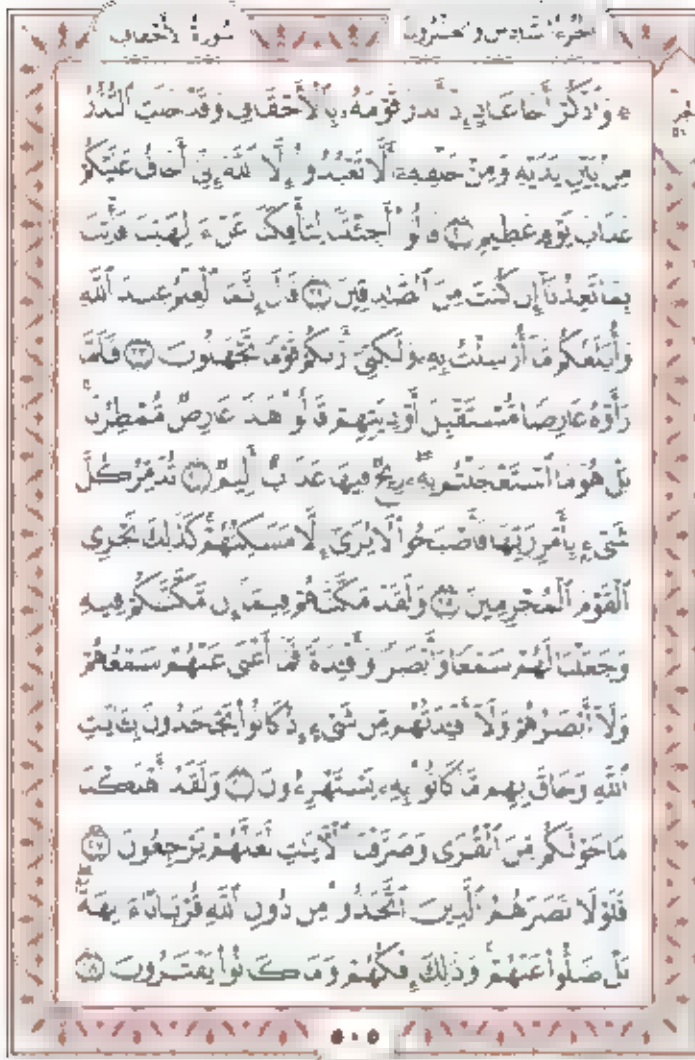 الجزء السادس والعشرون سورة الأحقاف
۞ وَٱذۡكُرۡ أَخَا عَادٍ إِذۡ أَنذَرَ قَوۡمَهُۥ بِٱلۡأَحۡقَافِ وَقَدۡ خَلَتِ ٱلنُّذُرُ
مِنۢ بَيۡنِ يَدَيۡهِ وَمِنۡ خَلۡفِهِۦٓ أَلَّا تَعۡبُدُوٓاْ إِلَّا ٱللَّهَ إِنِّيٓ أَخَافُ عَلَيۡكُمۡ
عَذَابَ يَوۡمٍ عَظِيمٖ ٢١ قَالُوٓاْ أَجِئۡتَنَا لِتَأۡفِكَنَا عَنۡ ءَالِهَتِنَا فَأۡتِنَا
بِمَا تَعِدُنَآ إِن كُنتَ مِنَ ٱلصَّٰدِقِينَ ٢٢ قَالَ إِنَّمَا ٱلۡعِلۡمُ عِندَ ٱللَّهِ
وَأُبَلِّغُكُم مَّآ أُرۡسِلۡتُ بِهِۦ وَلَٰكِنِّيٓ أَرَىٰكُمۡ قَوۡمٗا تَجۡهَلُونَ ٢٣ فَلَمَّا
رَأَوۡهُ عَارِضٗا مُّسۡتَقۡبِلَ أَوۡدِيَتِهِمۡ قَالُواْ هَٰذَا عَارِضٞ مُّمۡطِرُنَاۚ
بَلۡ هُوَ مَا ٱسۡتَعۡجَلۡتُم بِهِۦۖ رِيحٞ فِيهَا عَذَابٌ أَلِيمٞ ٢٤ تُدَمِّرُ كُلَّ
شَيۡءِۭ بِأَمۡرِ رَبِّهَا فَأَصۡبَحُواْ لَا يُرَىٰٓ إِلَّا مَسَٰكِنُهُمۡۚ كَذَٰلِكَ نَجۡزِي
ٱلۡقَوۡمَ ٱلۡمُجۡرِمِينَ ٢٥ وَلَقَدۡ مَكَّنَّٰهُمۡ فِيمَآ إِن مَّكَّنَّٰكُمۡ فِيهِ
وَجَعَلۡنَا لَهُمۡ سَمۡعٗا وَأَبۡصَٰرٗا وَأَفۡـِٔدَةٗ فَمَآ أَغۡنَىٰ عَنۡهُمۡ سَمۡعُهُمۡ
وَلَآ أَبۡصَٰرُهُمۡ وَلَآ أَفۡـِٔدَتُهُم مِّن شَيۡءٍ إِذۡ كَانُواْ يَجۡحَدُونَ بِـَٔايَٰتِ
ٱللَّهِ وَحَاقَ بِهِم مَّا كَانُواْ بِهِۦ يَسۡتَهۡزِءُونَ ٢٦ وَلَقَدۡ أَهۡلَكۡنَا
مَا حَوۡلَكُم مِّنَ ٱلۡقُرَىٰ وَصَرَّفۡنَا ٱلۡأٓيَٰتِ لَعَلَّهُمۡ يَرۡجِعُونَ ٢٧
فَلَوۡلَا نَصَرَهُمُ ٱلَّذِينَ ٱتَّخَذُواْ مِن دُونِ ٱللَّهِ قُرۡبَانًا ءَالِهَةَۢۖ
بَلۡ ضَلُّواْ عَنۡهُمۡۚ وَذَٰلِكَ إِفۡكُهُمۡ وَمَا كَانُواْ يَفۡتَرُونَ ٢٨
٥٠٥